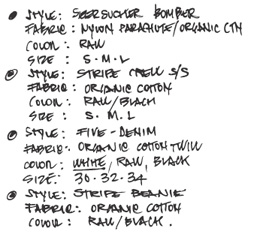 STYLE: SEERSUCKER BOMBER
FABRIC: NYLON PARACHUTE/ORGANIC CTN
COLOR: RAW
SIZE : S · M · L
STYLE: STRIPE CREW S/S
FABRIC: ORGANIC COTTON
COLOR: RAW/BLACK
SIZE : S. M. L
STYLE: FIVE-DENIM
FABRIC: ORGANIC COTTON TWILL
COLOR: WHITE, RAW, BLACK
SIZE: 30·32·34
STYLE: STRIPE BEANIE
FABRIC: ORGANIC COTTON
COLOR: RAW/BLACK.